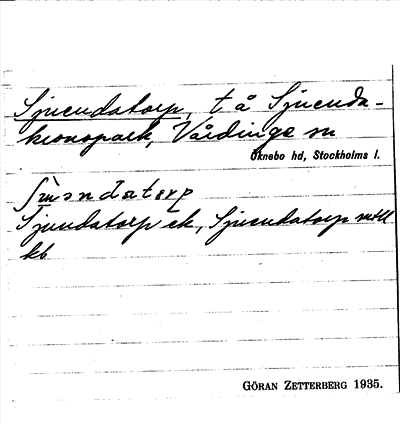 Sjuendatorp, t å Sjuenda-
kronopark, Vårdinge sn
Öknebo hd, Stockholms l.
Sjuendatorp ek, Sjuendatorp mtll
kb
GÖRAN ZETTERBERG 1935.